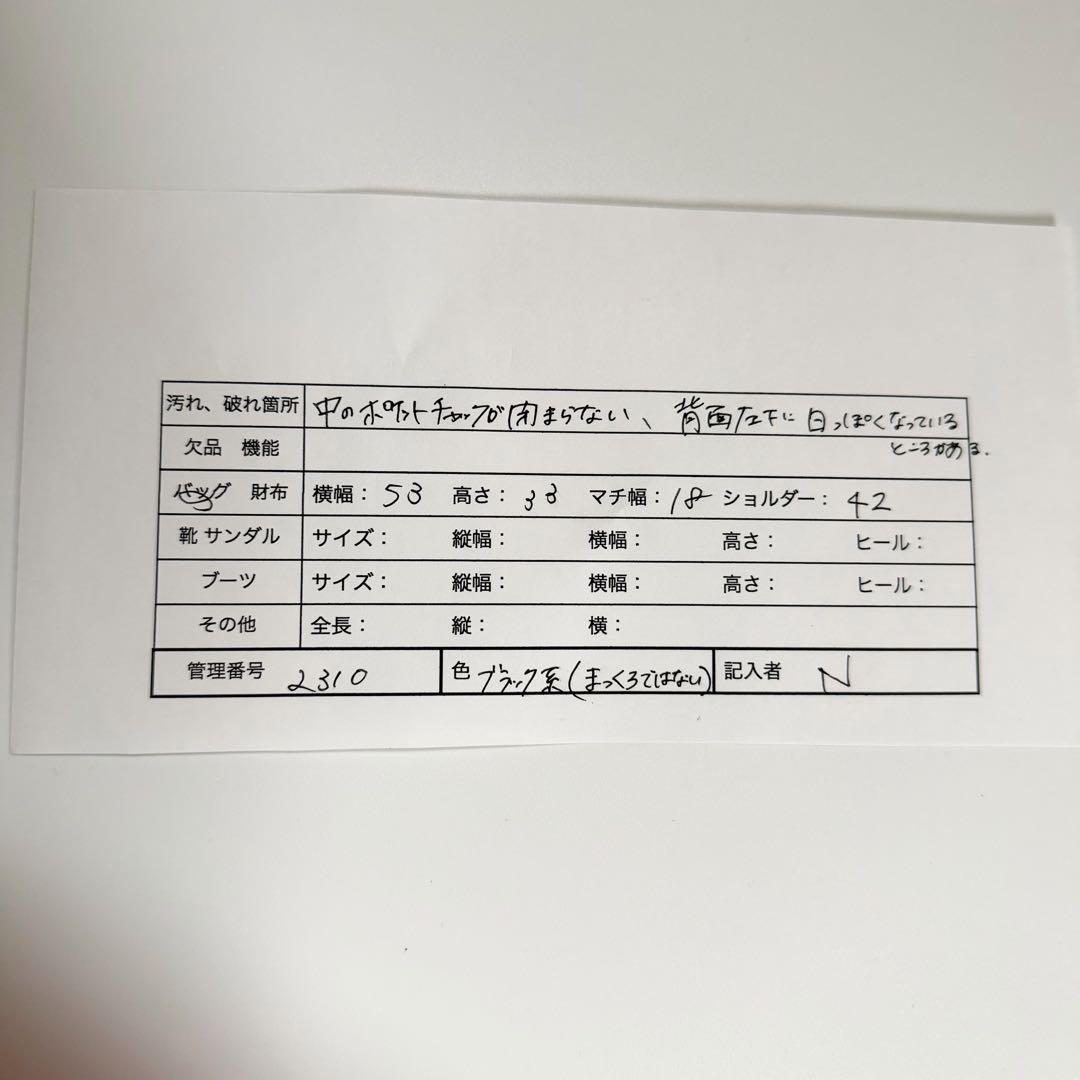 汚れ、破れ箇所 中のポケットチャックが閉まらない、背面左下に白っぽくなっている
ところがある.
欠品 機能
バッグ 財布 横幅： 53 高さ： 33 マチ幅： 18 ショルダー： 42
靴 サンダル サイズ： 縦幅： 横幅： 高さ： ヒール：
ブーツ サイズ： 縦幅： 横幅： 高さ： ヒール：
その他 全長： 縦： 横：
管理番号 2310 色 ブラック系(まっくろではない) 記入者 N